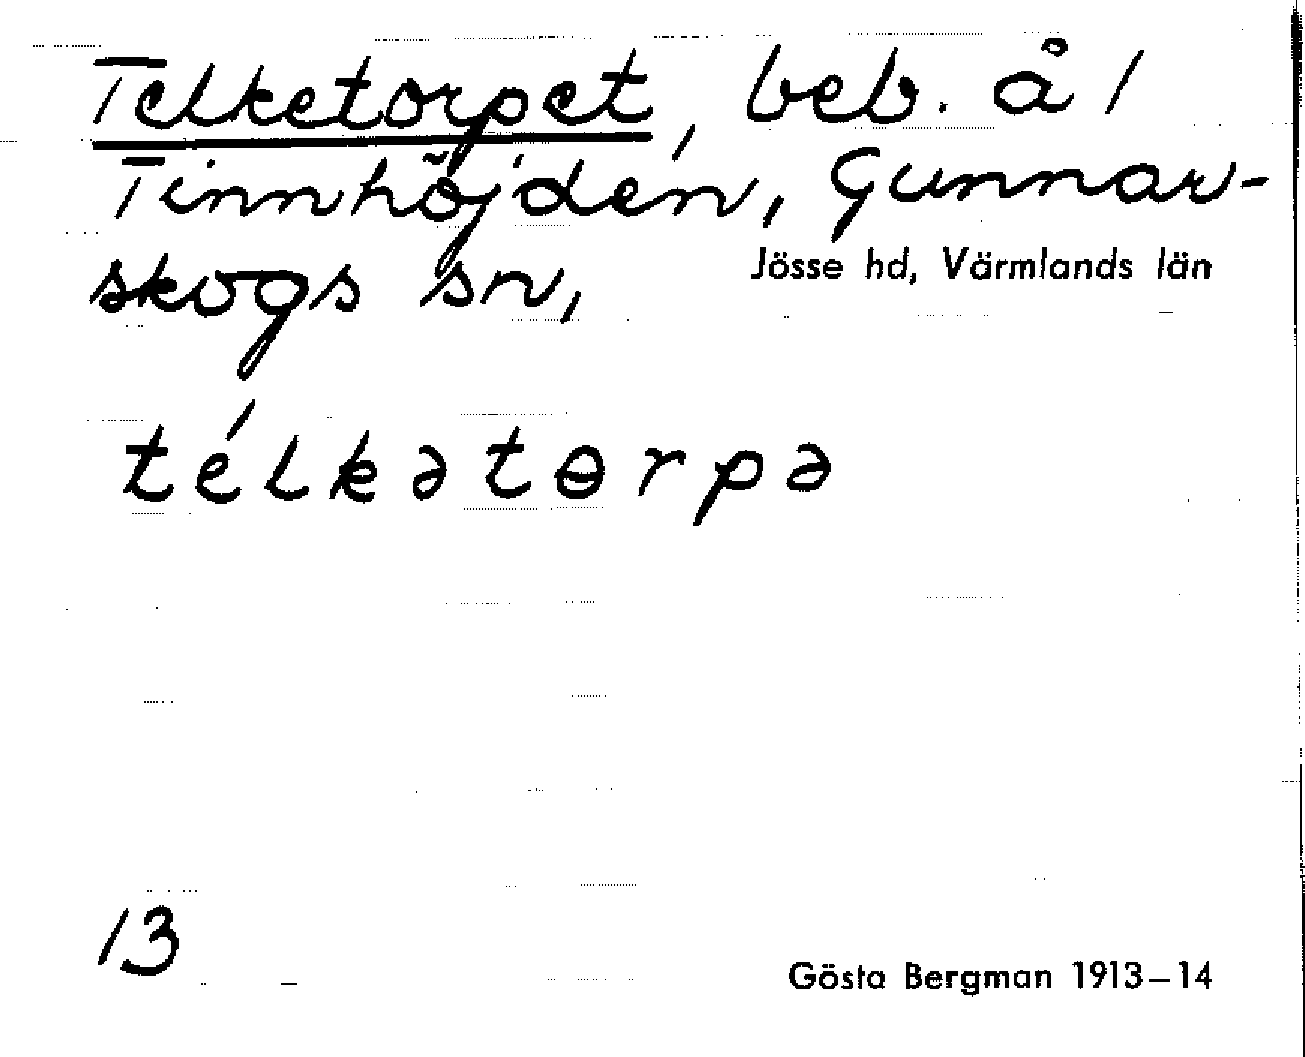 Telketorpet, beb. å 1
Tinnhöjden, Gunnar-
skogs sn,
Jösse hd, Värmlands län
télkətɵrpə
13
Gösta Bergman 1913–14